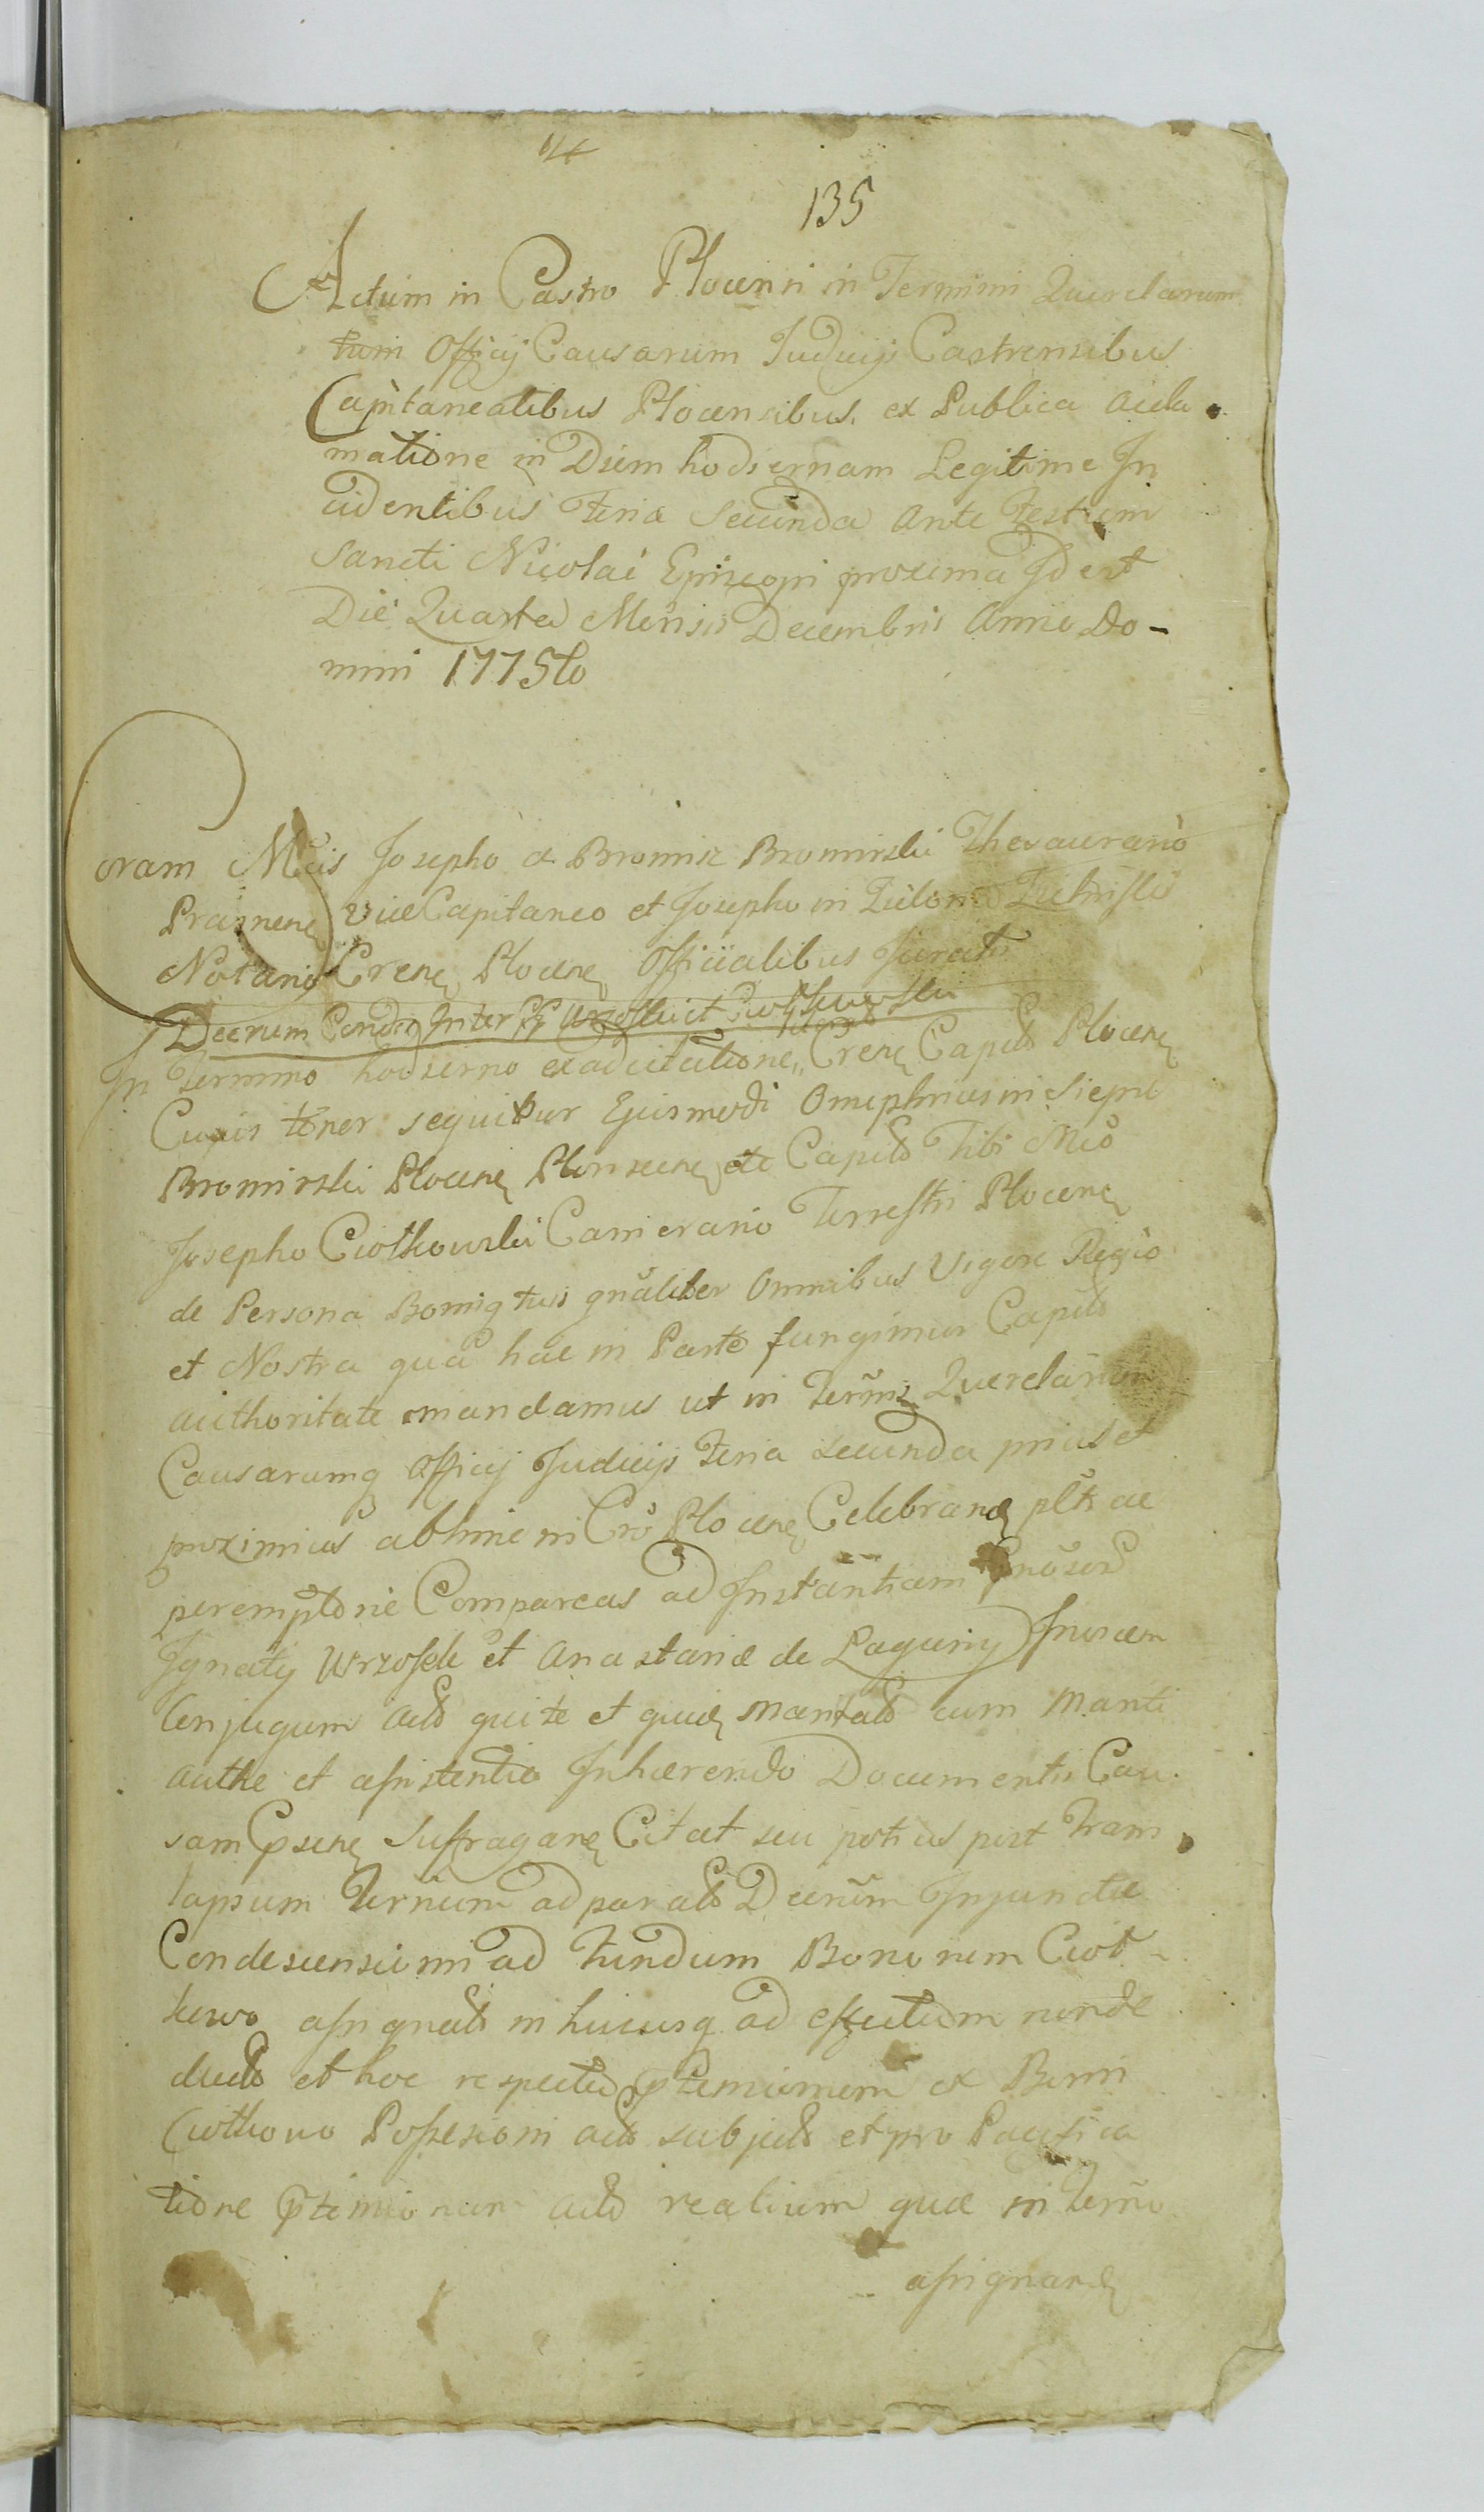 135
Actum in Castro Plocensi in Termini Querelarum
tum Officij Causarum Judicijs Castrensibus
Capitanealibus Plocensibus. ex Publica accla
matione in Diem hodiernam Legitime In
cidentibus Feria Secunda Ante Festum
Sancti Nicolai Episcopi proxima Id est
Die Quarta Mensis Decembris Anno Do-
mini 1775to
Coram Mcis Josepho de Bromirz Bromirski Thesaurario
Prasnene viceCapitaneo et Josepho in
Notario Crene Plocene Officialibus Juratis
Decrum Cond Inter
In Termino hodierno ex adcitatione Crene Capito Plocene
Cujus tenor sequitur Ejusmodi Onuphrius in Siepro
Bromirski Plocene Plonscene etc Capito Tibi Mco
Josepho Ciotkowski Camerario Terrestri Plocene
de Persona Bonisq tuis gnaliter Omnibus Vigore Regio
et Nostra qua hac in Parte fungimur Capito
authoritate mandamus ut in Termis Querelarum
Causarumq Officij Judicijs Feria secunda prius et
proximius abhinc in Cro Plocene Celebrane plr ac
peremptorie Compareas ad Instantiam Gnosor
Ignatij Wrzosek et Anastasiæ de Laguny Invicem
Conjugum Acto qui te et quide Maritalo cum Mariti
authe et assistentia Inhærendo Documentis Cau-
sam Psene Suffragane Citat seu potius post Trans
lapsum Ternum ad par Decrum Injunctæ
Condescensioni ad Fundum Bonorum Ciot-
kowo assignato in hucusq ad effectum nonde
ducto et hoc respectu ex Bonis
Ciotkowo Possessioni acto subjecto et pro Pacifica
tione acto realium quæ in Termo
assignane